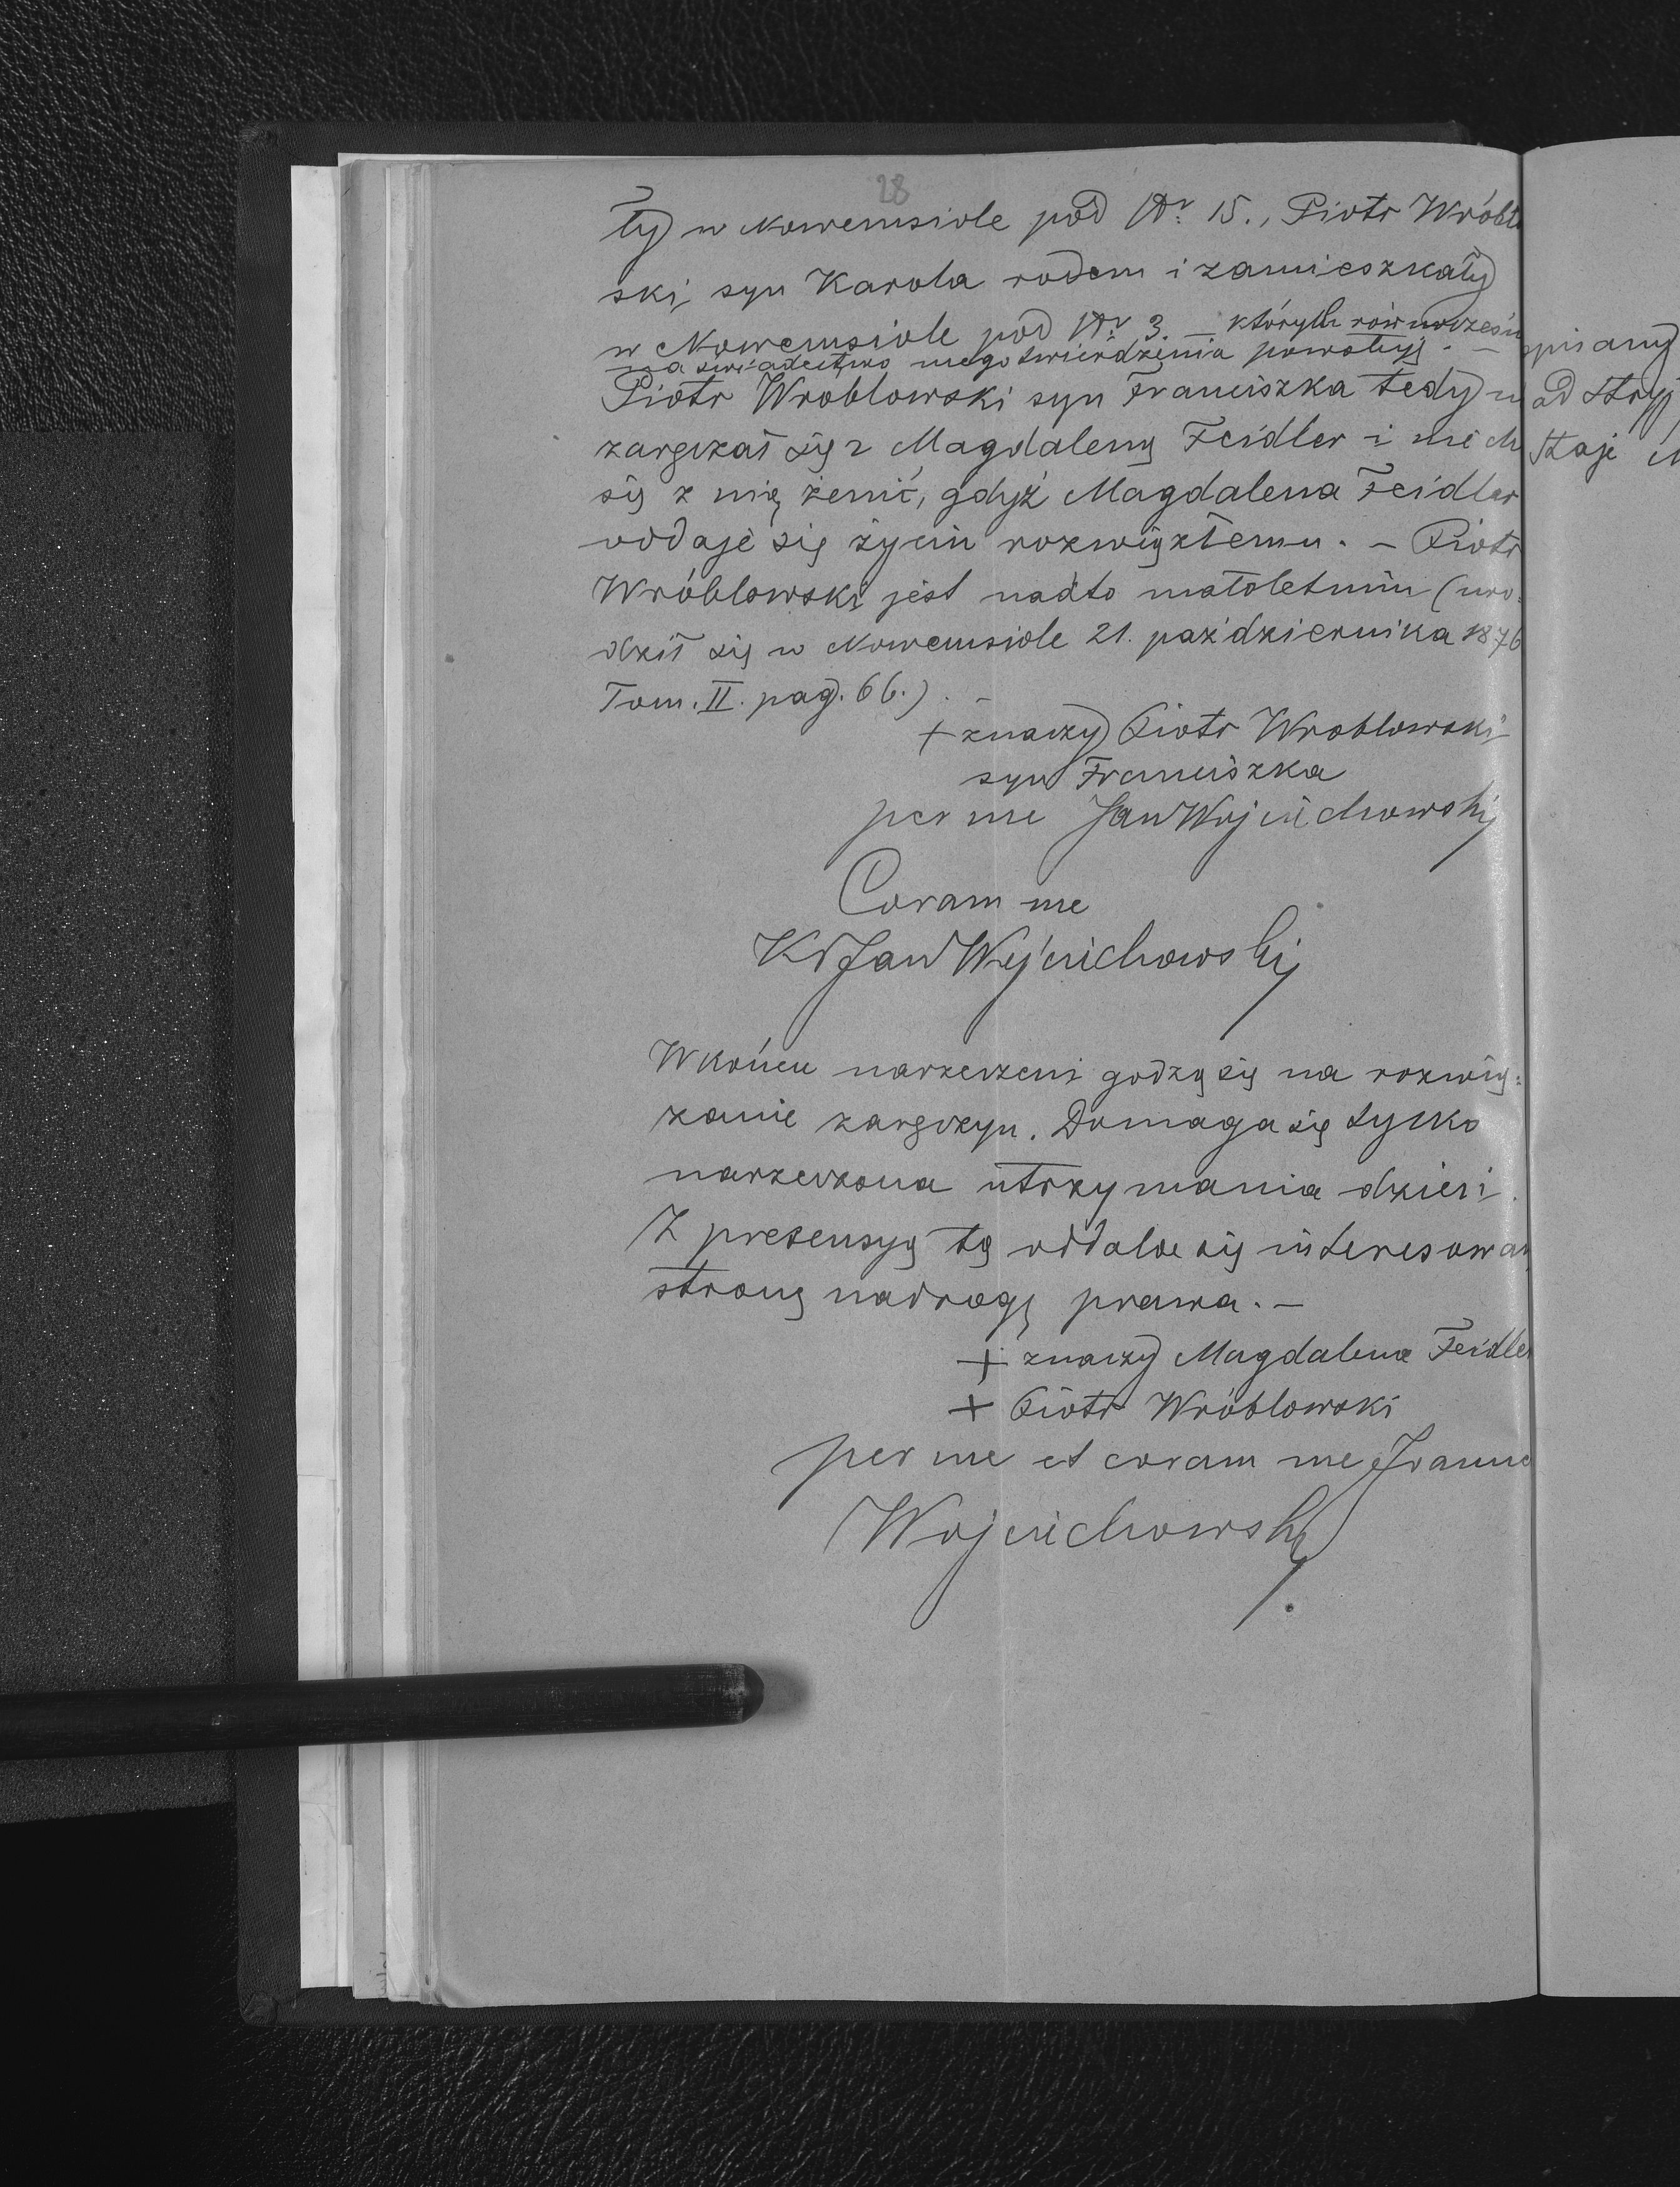 28
ły w Nowemsiole pod Nr. 15., Piotr Wróbl
ski, syn Karola rodem i zamieszkały
w Nowemsiole pod Nr 3. — których równocześn
na świadectwo mego twierdzenia powołuję. —
Piotr Wroblowski syn Franciszka tedy
zaręczał się z Magdaleną Feidler i nie ch
się z nią żenić, gdyż Magdalena Feidler
oddaje się życiu rozwiązłemu. — Piotr
Wróblowski jest nadto małoletnim (uro-
dził się w Nowemsiole 21. października 1876
Tom. II. pag. 66.). —
+ znaczy Piotr Wroblowski
syn Franciszka
per me Jan Wojciechowski
Coram me
X Jan Wojciechowski
Wkońcu narzeczeni godzą się na rozwią-
zanie zaręczyn. Domaga się tylko
narzeczona utrzymania dzieci.
Z pretensyą tą oddala się interesowan
stronę na drogę prawa. —
+ znaczy Magdalena Feidler
+ Piotr Wróblowski
per me et coram me Joanne
Wojciechowski
pisany
ad Stryj
Staje